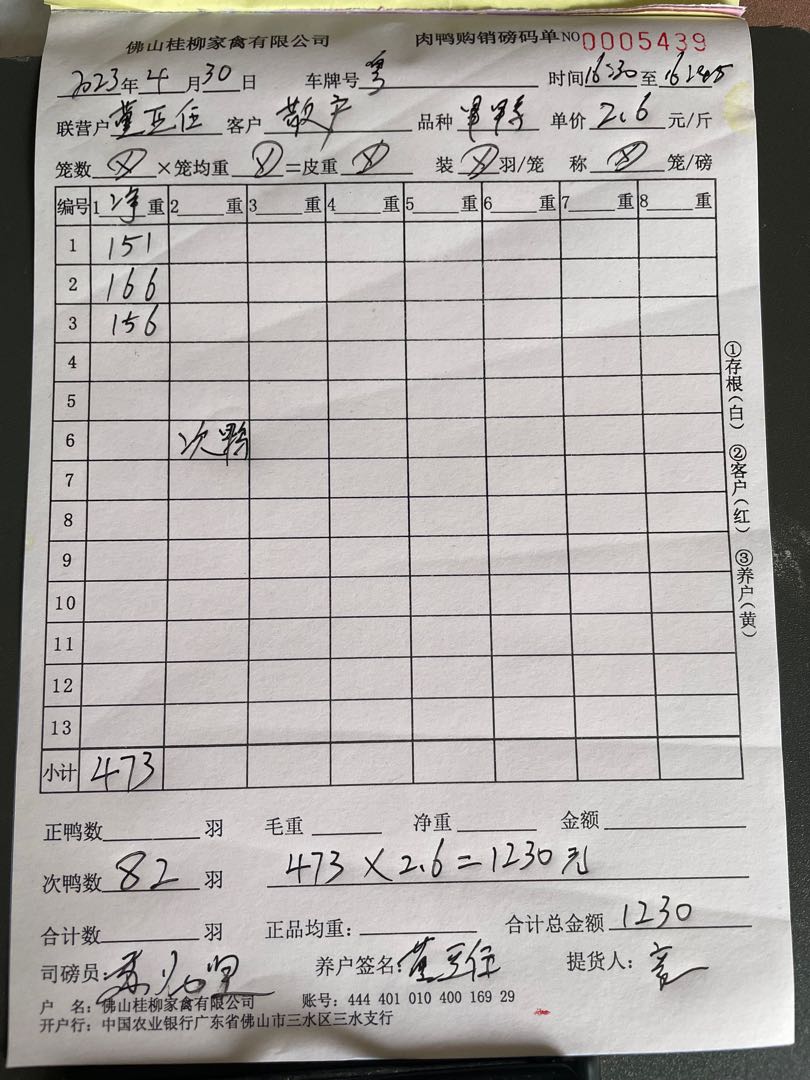 佛山桂柳家禽有限公司 肉鸭购销磅码单 NO 0005439
2023年 4 月 30 日 车牌号 粤 时间 16:30 至
联营户 客户 散户 品种 单价 2.6 元/斤
笼数 ×笼均重 =皮重 装 羽/笼 称 笼/磅
编号 1 净 重 2 重 3 重 4 重 5 重 6 重 7 重 8 重
1 151
2 166
3 156
4
5
6 次鸭
7
8
9
10
11
12
13
小计 473
①存根(白) ②客户(红) ③养户(黄)
正鸭数 羽 毛重 净重 金额
次鸭数 82 羽 473×2.6=1230元
合计数 羽 正品均重: 合计总金额 1230
司磅员: 养户签名: 提货人:
户 名: 佛山桂柳家禽有限公司 账号: 444 401 010 400 169 29
开户行: 中国农业银行广东省佛山市三水区三水支行